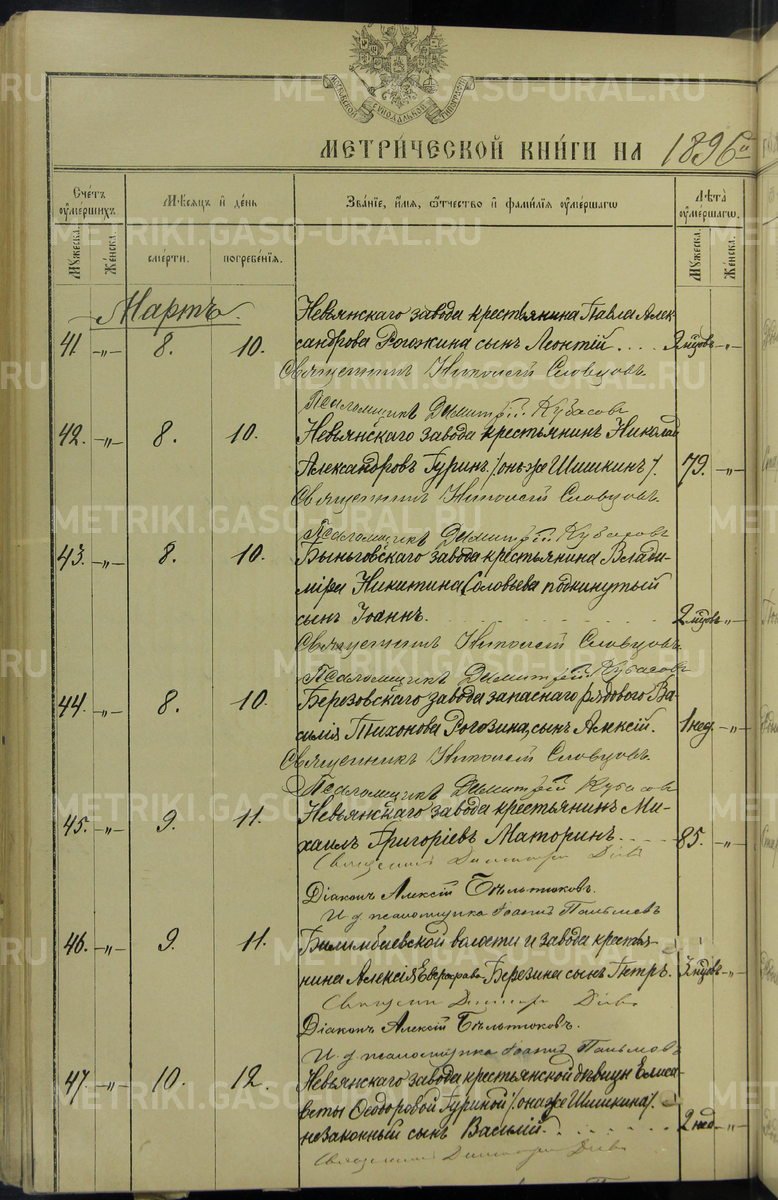 МОСКОВСКОЙ СѴНОДАЛЬНОЙ ТИПОГРАФІИ
МЕТРИ́ЧЕСКОЙ КНИ́ГИ НА 1896й
Сче́тъ ᲂу҆ме́ршихъ
Мѣ́сяцъ и҆ де́нь
Зва́нїе, и҆́мя, ѻ҆́тчество и҆ фами́лїя ᲂу҆ме́ршагѡ
Лѣ́та ᲂу҆ме́ршагѡ.
Мꙋжеска.
Же́нска.
сме́рти.
погребе́нїѧ.
Мꙋжеска.
Же́нска.
Мартъ.
Невьянскаго завода крестьянина Павла Алек-
41 -„- 8. 10. сандрова Рогожина сынъ Леонтій . . . . 2 мцовъ -„-
Священникъ Николай Словцовъ
Псаломщикъ Димитрій Кубасовъ
42. -„- 8. 10. Невьянскаго завода крестьянинъ Николай
Александровъ Гуринъ /онъ же Шишкинъ/. 79. -„-
Священникъ Николай Словцовъ.
Псаломщикъ Димитрій Кубасовъ
43. -„- 8. 10. Быньговскаго завода крестьянина Влади-
міра Никитина Соловьева подкинутый
сынъ Іоаннъ. 2 мцовъ -„-
Священникъ Николай Словцовъ.
Псаломщикъ Димитрій Кубасовъ
44. -„- 8. 10. Березовскаго завода запаснаго рядоваго Ва-
силія Тихонова Рогозина, сынъ Алексій. 1 нед. -„-
Священникъ Николай Словцовъ.
Псаломщикъ Димитрій Кубасовъ
45. -„- 9. 11. Невьянскаго завода крестьянинъ Ми-
хаилъ Григоріевъ Маторинъ. 85. -„-
Священникъ
Діаконъ Алексій Бѣльтюковъ.
И д псаломщика Іоаннъ
46. -„- 9. 11. Билимбаевской волости и завода крестья-
нина Алексія Евграфова Березина сынъ Петръ. 3 мцовъ -„-
Діаконъ Алексій Бѣльтюковъ.
И д псаломщика Іоаннъ
47. -„- 10. 12. Невьянскаго завода крестьянской дѣвицы Елиса-
веты Ѳеодоровой Гуриной /она же Шишкина/.
незаконный сынъ Василій. 2 нед -„-
METRIKI.GASO-URAL.RU